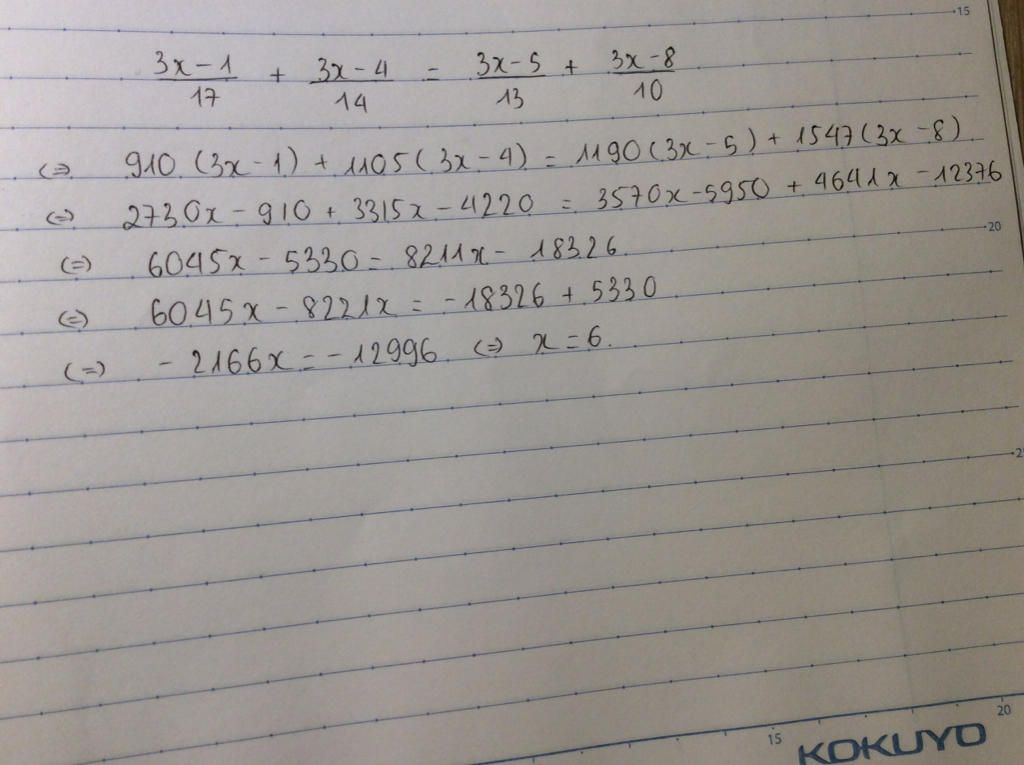 15
3x-1/17 + 3x-4/14 = 3x-5/13 + 3x-8/10
(=) 910(3x-1) + 1105(3x-4) = 1190(3x-5) + 1547(3x-8)
(=) 2730x - 910 + 3315x - 4220 = 3570x - 5950 + 4641x - 12376
20
(=) 6045x - 5330 = 8211x - 18326
(=) 6045x - 8221x = -18326 + 5330
(=) -2166x = -12996 (=) x = 6.
2
15
20
KOKUYO